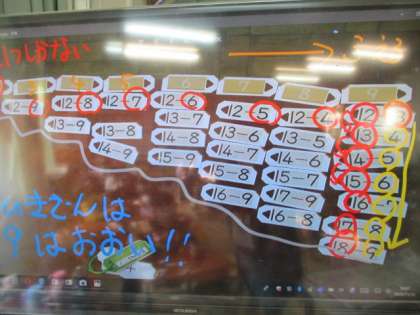 3 4 5 6 7 8 9
12-9 12-8 12-7 12-6 12-5 12-4 12-3
13-9 13-8 13-7 13-6 13-5 13-4
14-9 14-8 14-7 14-6 14-5
15-9 15-8 15-7 15-6
16-9 17-9 16-7
16-8 17-8
18-9
ひきざんは
9はおおい!!
MITSUBISHI